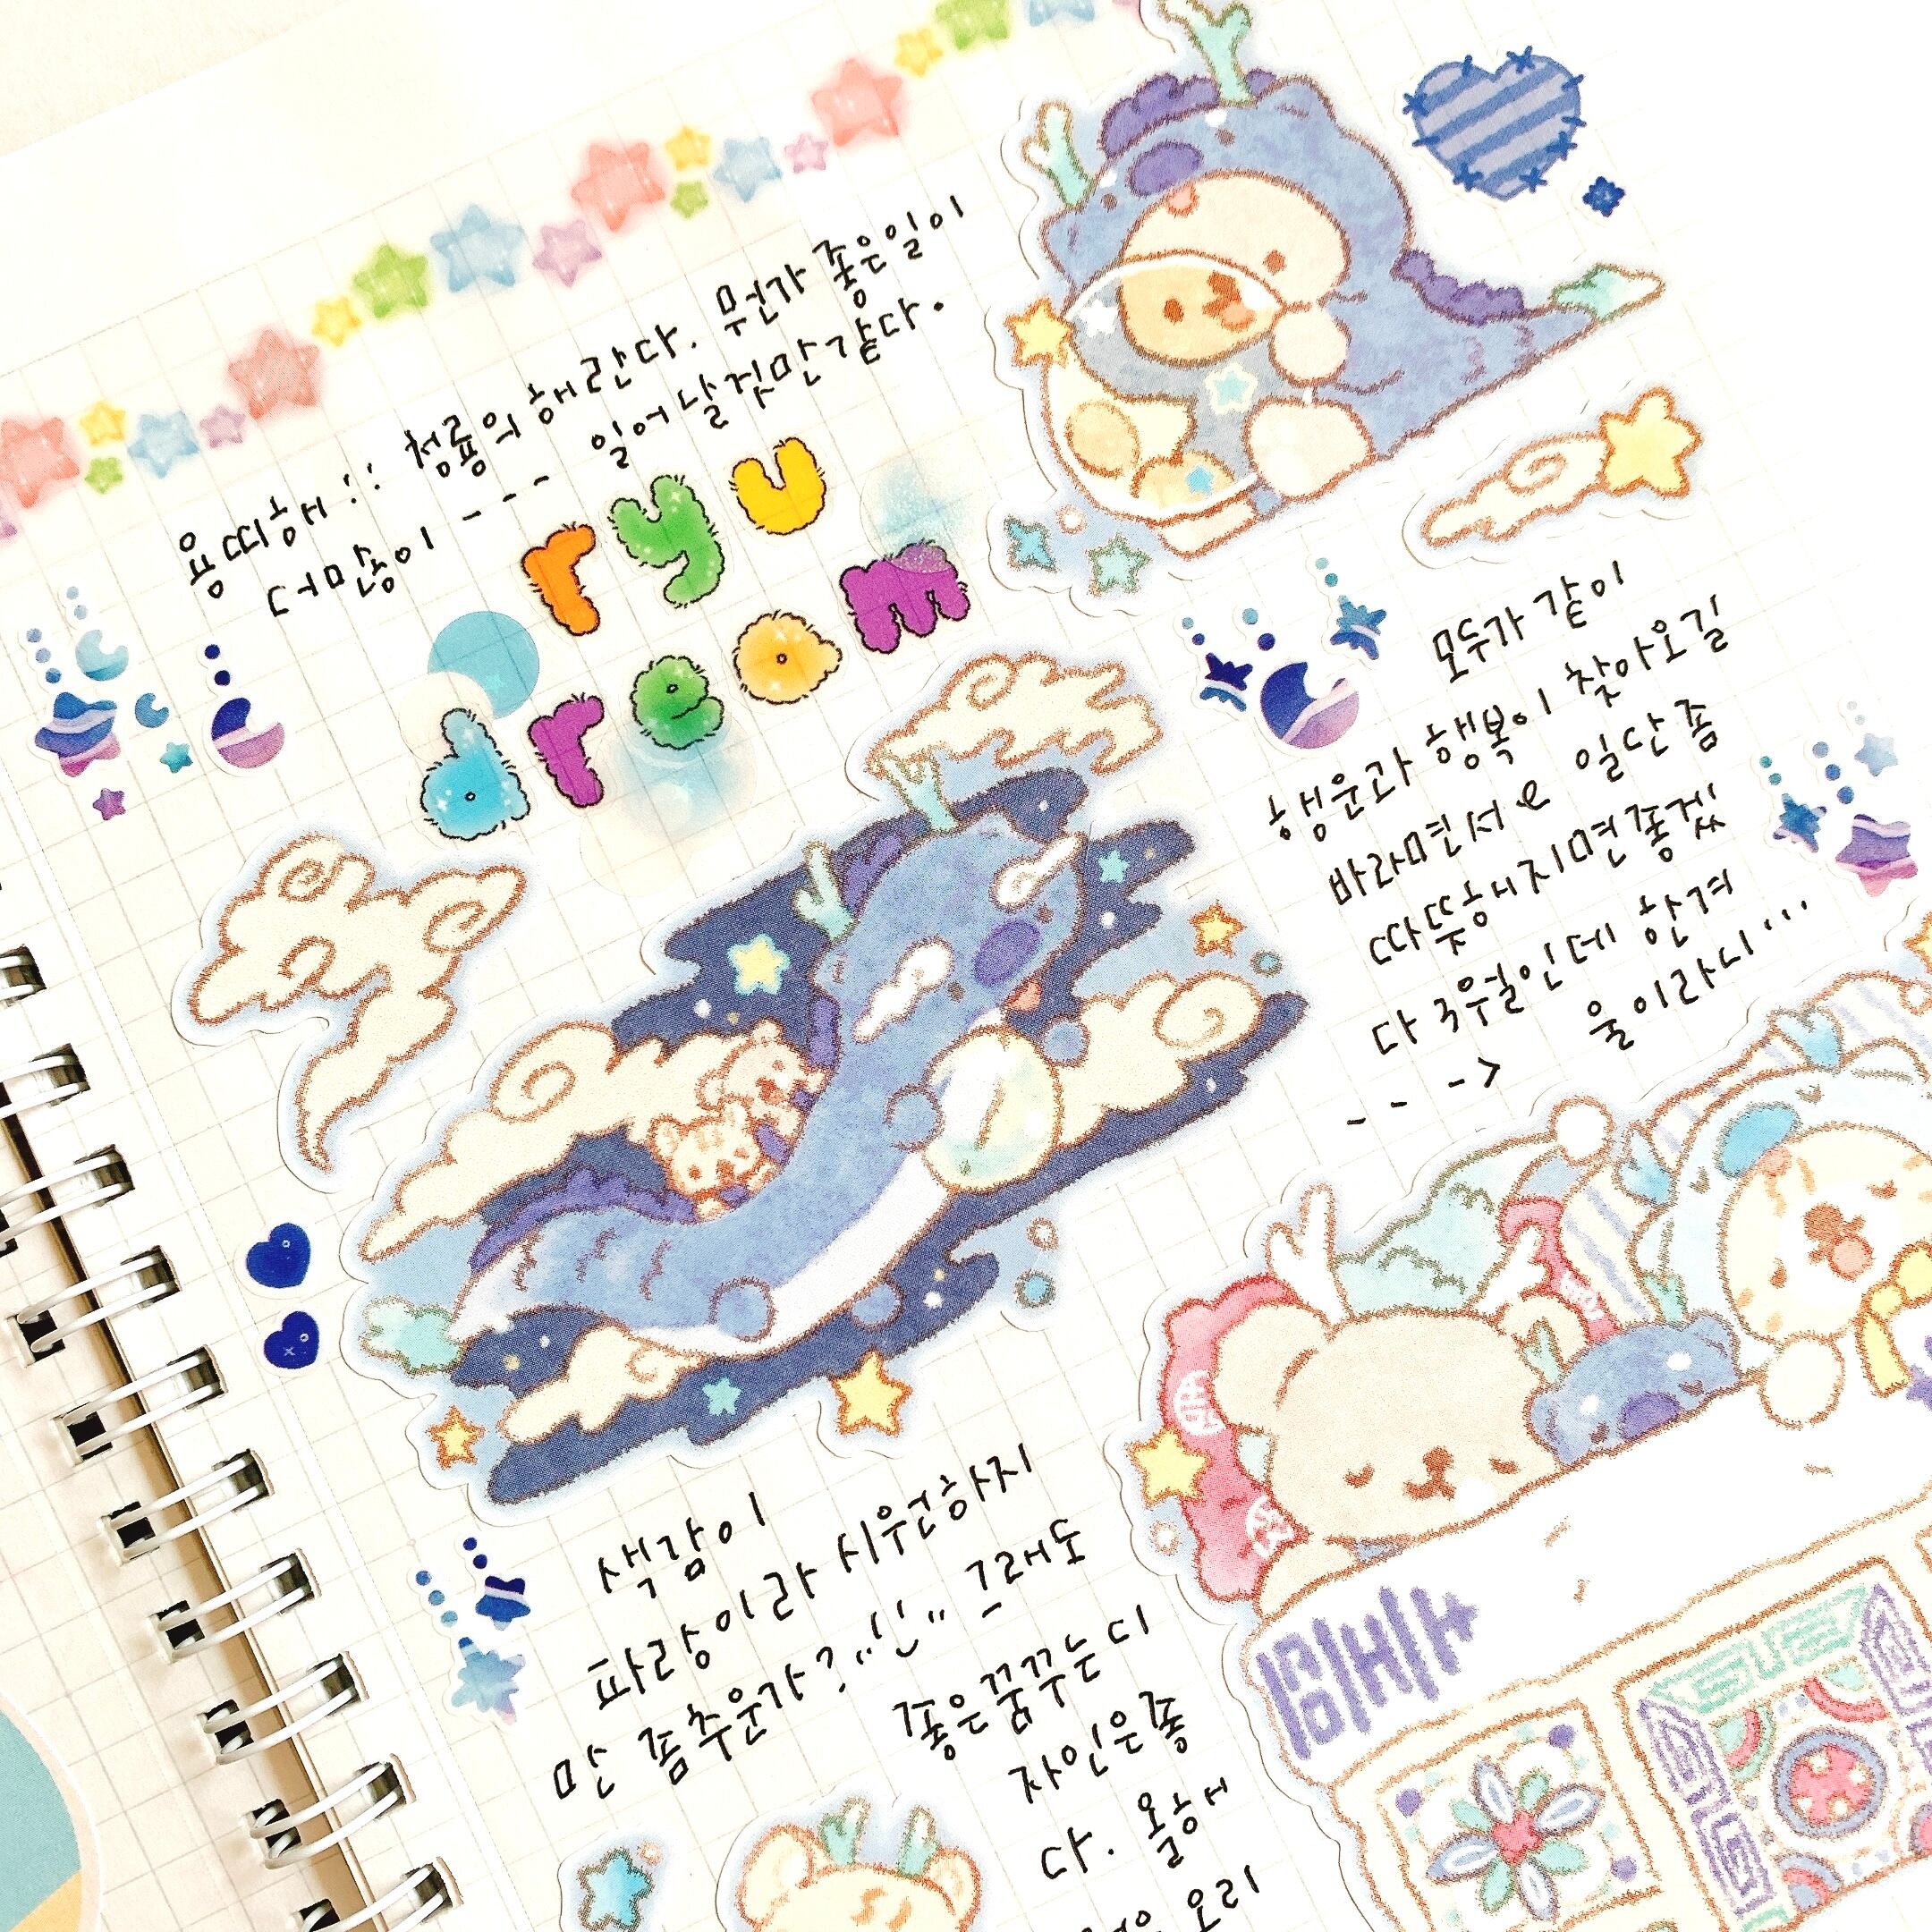 용띠해!! 청룡의해란다. 뭔가 좋은일이
더많이 --- 일어날것만같다.
ryu
dream
모두가 같이
행운과 행복이 찾아오길
바라면서 일단 좀
따뜻해지면좋겠
다 추월인데 한겨
울이라니...
--->
색감이
파랑이라 시원하지
만 좀추운가? 그래도
좋은꿈꾸는디
자인은좋
다. 올해
오리